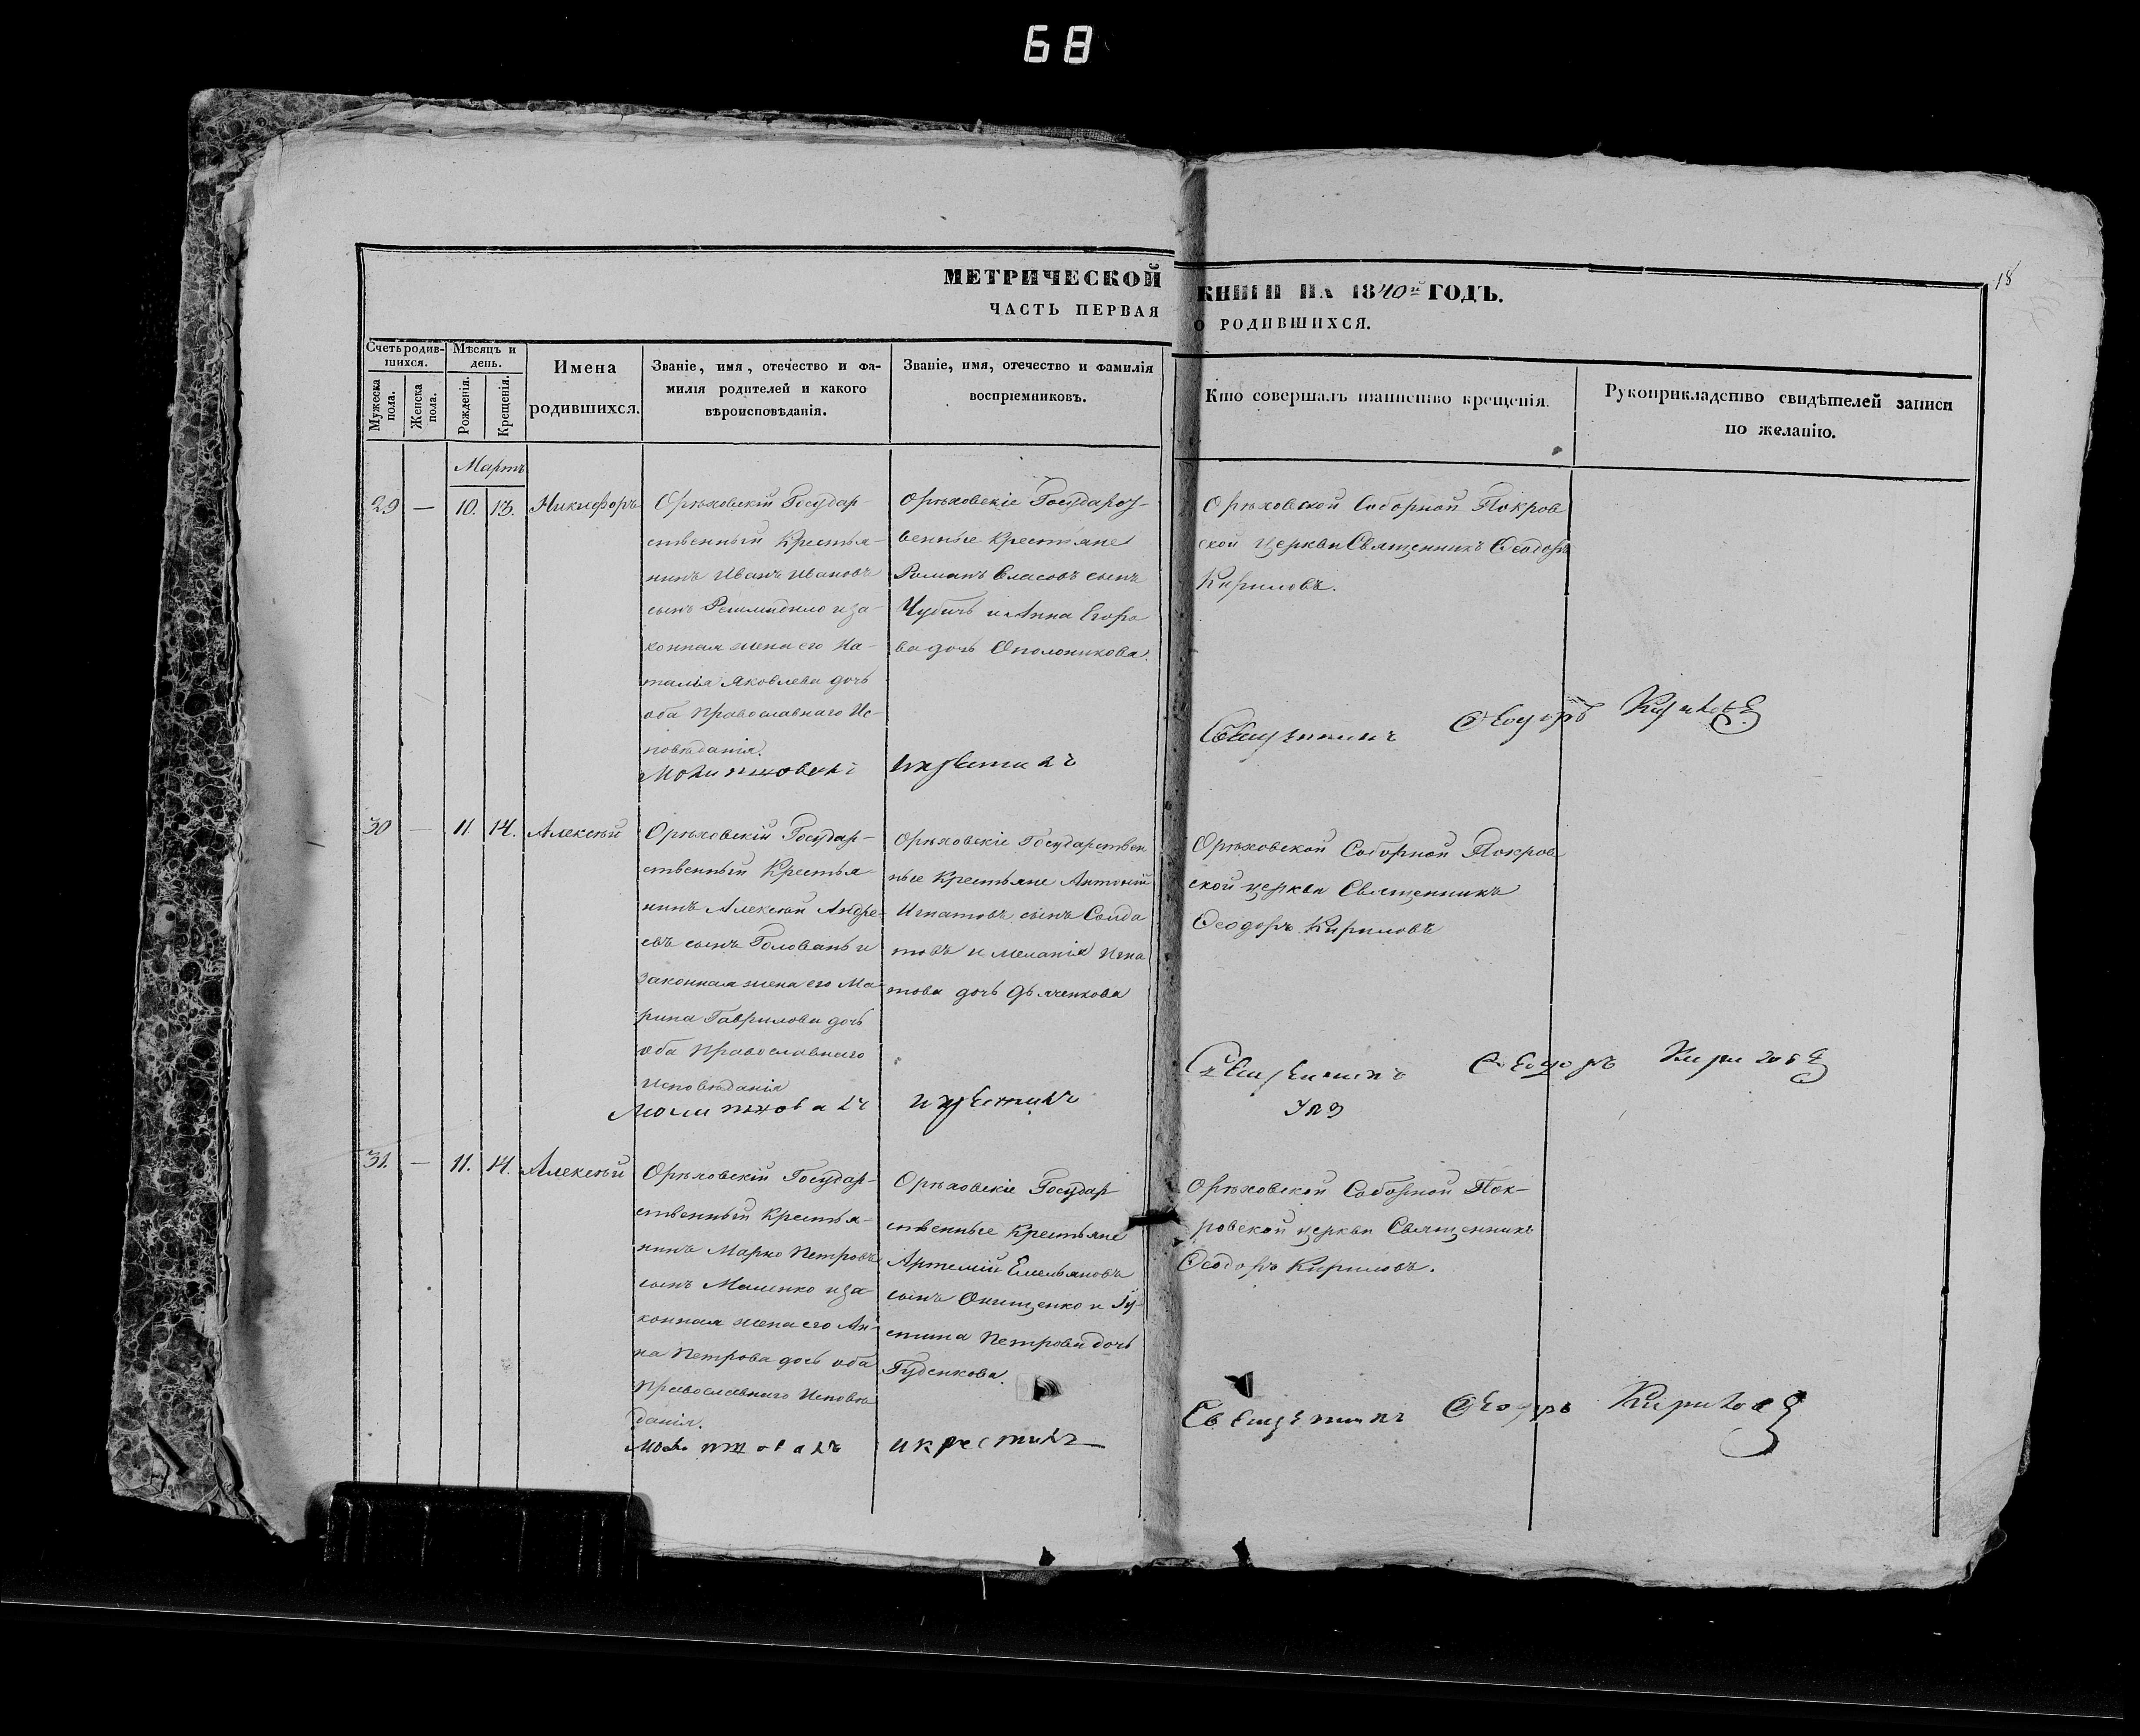 68
18
МЕТРИЧЕСКОЙ КНИГИ НА 1840й ГОДЪ.
ЧАСТЬ ПЕРВАЯ О РОДИВШИХСЯ.
Счетъ родив-
шихся.
Мужеска пола.
Женска пола.
Мѣсяцъ и
день.
Рожденія.
Крещенія.
Имена
родившихся.
Званіе, имя, отечество и фа-
милія родителей и какого
вѣроисповѣданія.
Званіе, имя, отечество и фамилія
воспріемниковъ.
Кто совершалъ таинство крещенія.
Рукоприкладство свидѣтелей записи
по желанію.
Мартъ
29 — 10. 13. Никифоръ
Орѣховскій Государ-
ственный Крестья-
нинъ Иванъ Ивановъ
сынъ и за-
конная жена его На-
талія Яковлева дочь
оба Православнаго Ис-
повѣданія.
Орѣховскіе Государст-
венные Крестьяне
Романъ Власовъ сынъ
Чубичъ и Анна Егоро
ва дочь Ополоникова.
Орѣховской Соборной Покров
ской церкви Священникъ Ѳеодоръ
Кириловъ.
Молитвовалъ и крестилъ
Священникъ Ѳеодоръ Кириловъ
30 — 11. 14. Алексѣй
Орѣховскій Государ-
ственный Крестья-
нинъ Алексѣй Андре-
евъ сынъ Головань и
законная жена его Ма-
рина Гаврилова дочь
оба Православнаго
Исповѣданія
Орѣховскіе Государствен
ные Крестьяне Антоній
Игнатовъ сынъ Солда
товъ и Меланія Игна
това дочь Дьяченкова
Орѣховской Соборной Покров
ской церкви Священникъ
Ѳеодоръ Кириловъ
Молитвовалъ и крестилъ
Священникъ Ѳеодоръ Кириловъ
31. — 11. 14. Алексѣй
Орѣховскій Государ-
ственный Крестья-
нинъ Марко Петровъ
сынъ Маленко и за-
конная жена его Ан-
на Петрова дочь оба
Православнаго Исповѣ
данія.
Орѣховскіе Государ
ственные Крестьяне
Артемій Емельяновъ
сынъ Онищенко и Іу-
стина Петрова дочь
Гуденкова.
Орѣховской Соборной Пок-
ровской церкви Священникъ
Ѳеодоръ Кириловъ.
Молитвовалъ и крестилъ
Священникъ Ѳеодоръ Кириловъ